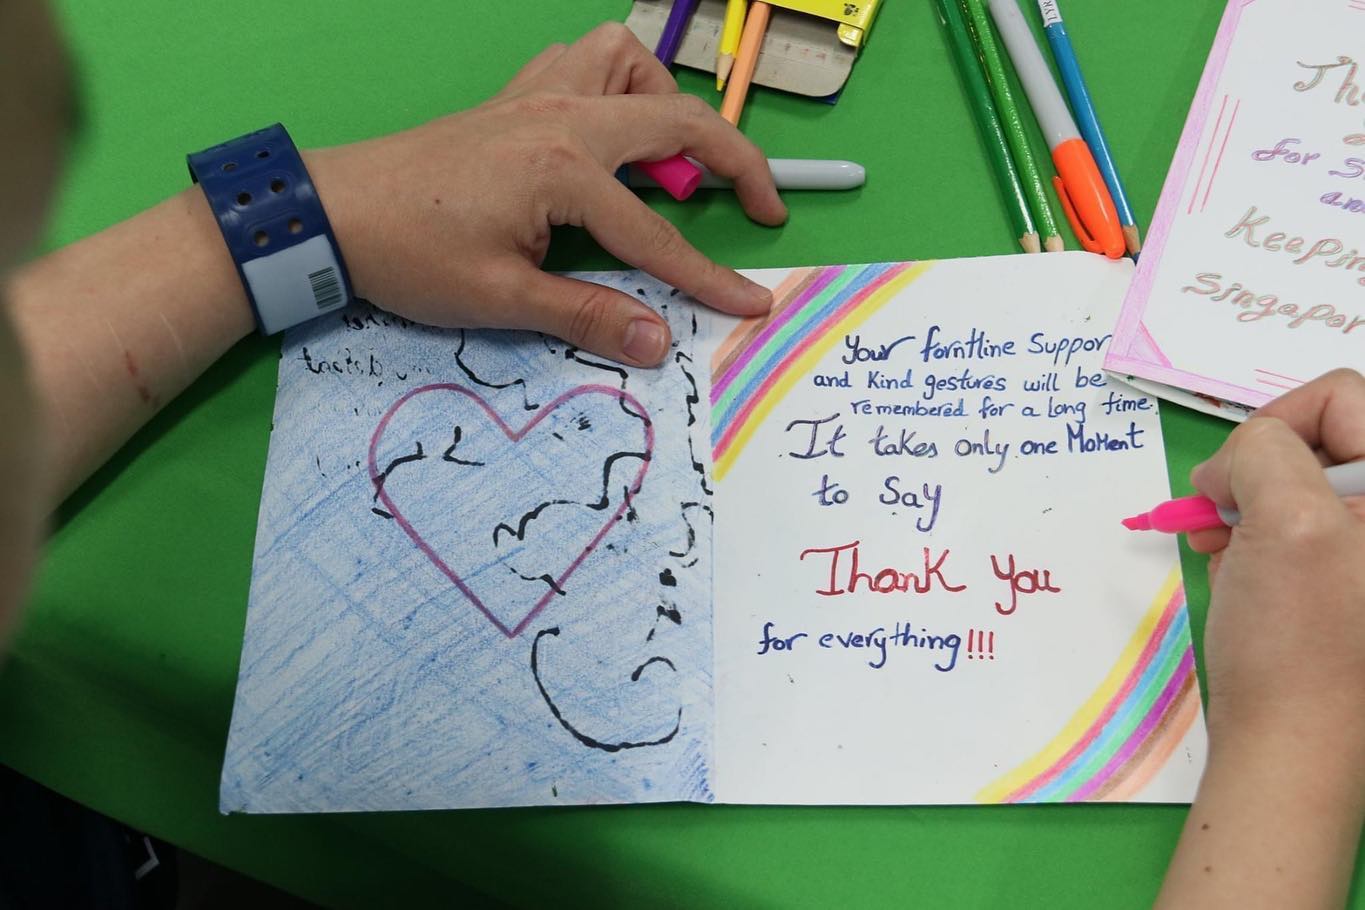 Your forntline Suppor
and Kind gestures will be
remembered for a long time.
It takes only one Moment
to Say
Thank You
for everything!!!
Th
for S
an
Keeping
Singapor
LYR